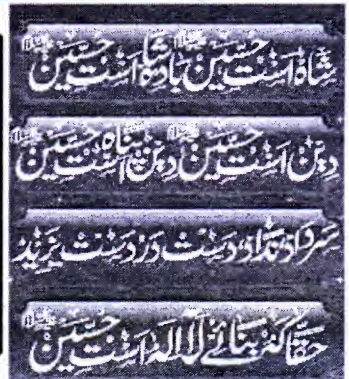 شاہ است حسینؑ بادشاہ است حسینؑ
دین است حسینؑ دین پناہ است حسینؑ
سر داد نداد دست در دست یزید
حقا کہ بنائے لا الہ است حسینؑ